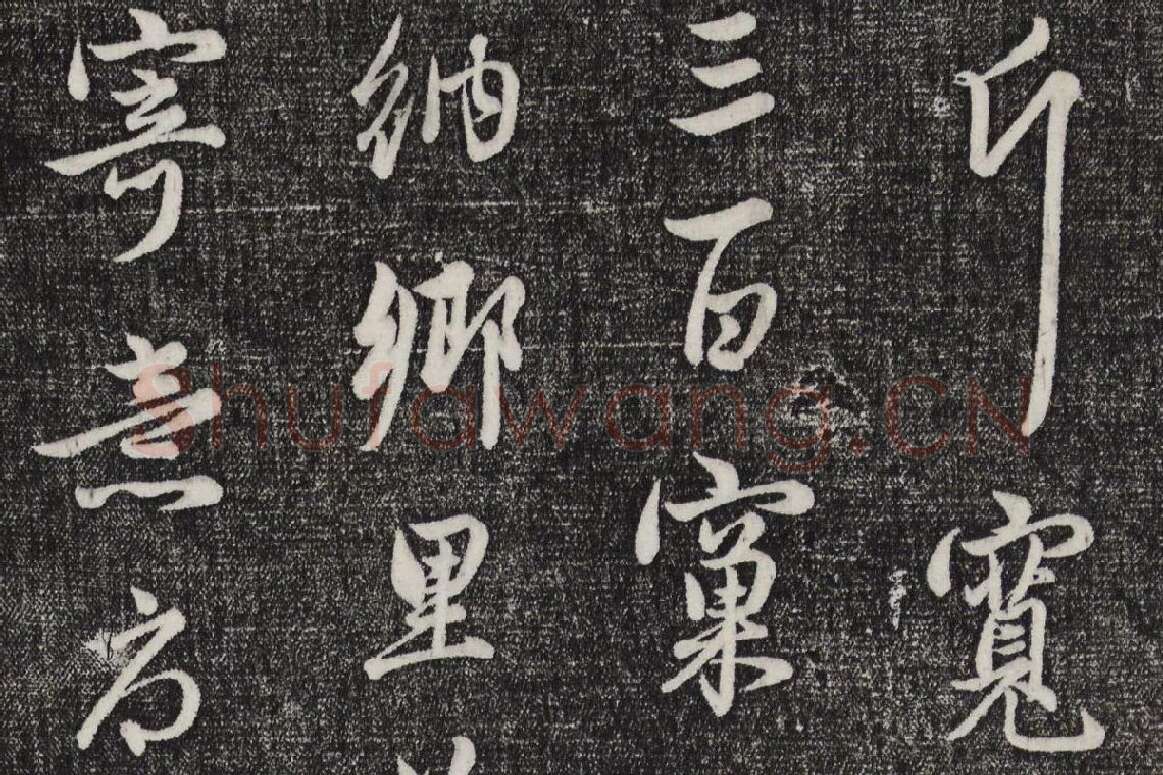 斤寬
三百窠
納鄉里
寄意方
Shufawang.CN